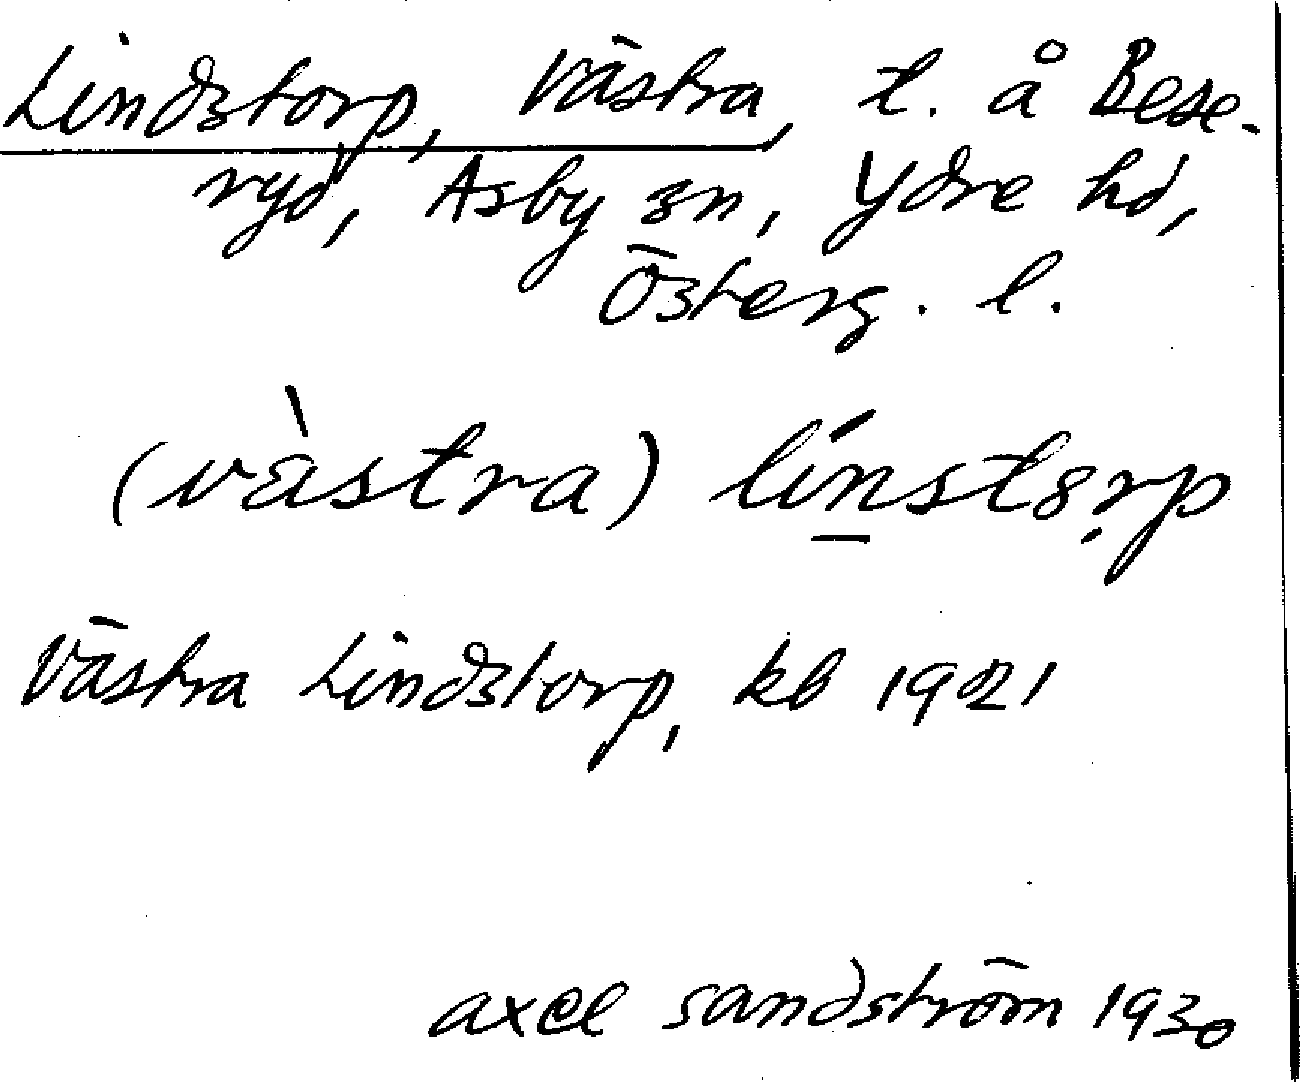 Lindstorp, Västra, t. å Bese-
ryd, Asby sn, Ydre hd,
Österg. l.
(vàstra) línstɷrp
Västra Lindstorp, kb 1921
axel sandström 1930